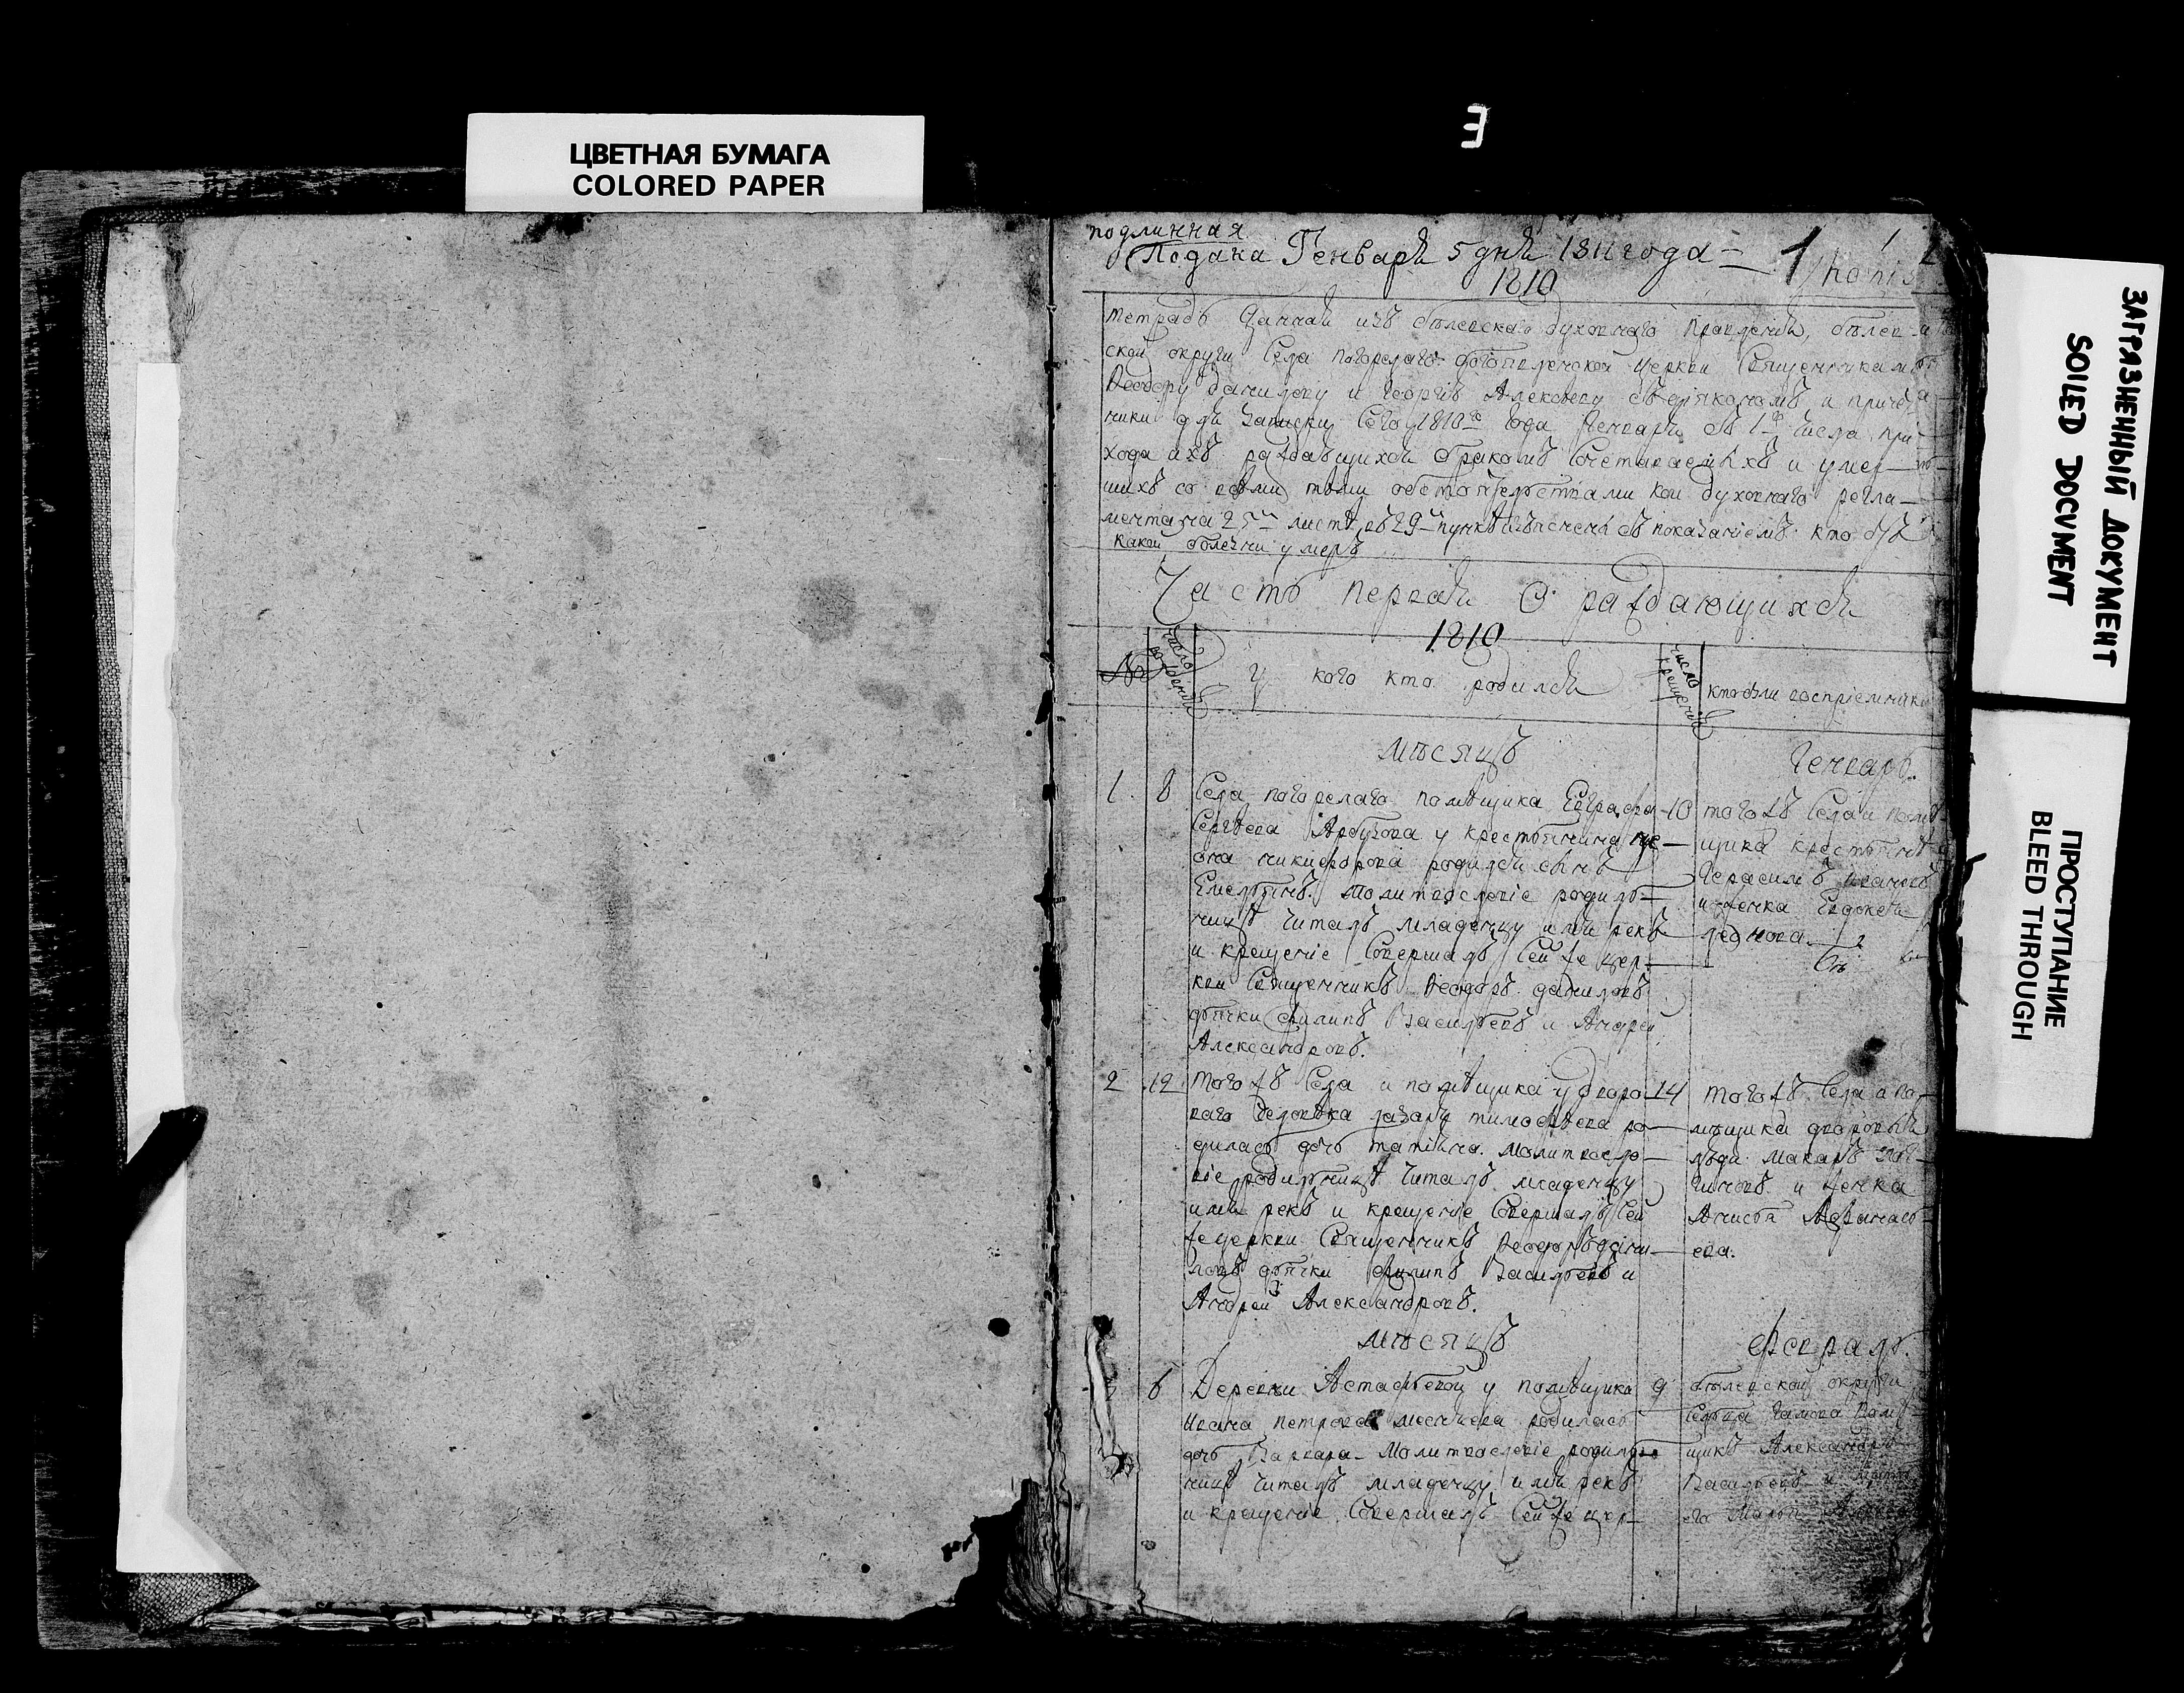 ЦВЕТНАЯ БУМАГА
COLORED PAPER
ЗАГРЯЗНЕННЫЙ ДОКУМЕНТ
SOILED DOCUMENT
ПРОСТУПАНИЕ
BLEED THROUGH
подлинная
Подана Генваря 5 дня 1811 года
1
1810
тетрадь данная изъ белевскаго духовнаго правления, белев-
ской округи Села погорелаго богоявленской церкви Священникамъ
Феодору данилову и Георгию Алексееву съ дьякономъ и причет-
ники для записки Сего 1810го Года Генваря съ 1го числа при-
хода ихъ раждающихся бракомъ Сочетаваемыхъ и умер-
шихъ со всеми теми обстоятельствами кои духовнаго регла-
мента на листе въ 29 пункте съ показаниемъ кто
какой болезни умеръ
Часть первая О раждающихся
1810
№
число рождения
У кого кто родился
число крещения
кто были восприемники
месяцъ
Генварь
1.
8
Села погорелаго помещика Евграфа
Сергеева Арбузова у крестьянина
никифорова родился сынъ
Емельянъ. Молитвословие родиль-
нице читалъ младенцу имя рекъ
и крещение Совершалъ Сей же цер-
кви Священникъ Феодоръ даниловъ
дьячки филипъ Васильевъ и Андрей
Александровъ.
10
того жъ Села и поме-
щика крестьяне
Герасимъ Ивановъ
и женка Евдокея
2
12
того жъ Села и помещика у дворо-
ваго человека лазаря тимофеева ро-
дилась дочь татияна. Молитвосло-
вие родильнице читалъ младенцу
имя рекъ и крещение Совершалъ Сей
же церкви Священникъ Феодоръ дани-
ловъ дьячки филипъ Васильевъ и
Андрей Александровъ.
14
того жъ Села а по-
мещика дворовыя
люди Макаръ
и женка
Анисья Афанась-
ева.
месяцъ
Февраль.
6
Деревни Астафьевой у помещика
Ивана петрова родилась
дочь Варвара. Молитвословие родиль-
нице читалъ младенцу имя рекъ
и крещение Совершалъ Сей же цер-
9
белевской округи
Сельца поме-
щикъ Александръ
Васильевъ и
его Марья